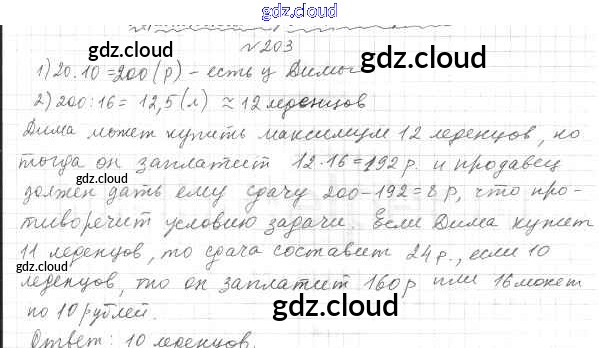 gdz.cloud
gdz.cloud gdz.cloud
N 203
1) 20 · 10 = 200 (р) - есть у Димы
2) 200 : 16 = 12,5 (л) ≈ 12 леденцов
gdz.cloud
Дима может купить максимум 12 леденцов, но
тогда он заплатит 12 · 16 = 192 р. и продавец
gdz.cloud
должен дать ему сдачу 200 - 192 = 8 р, что про-
тиворечит условию задачи. Если Дима купит
11 леденцов, то сдача составит 24 р., если 10
gdz.cloud
леденцов, то он заплатит 160 р или 16 монет
по 10 рублей.
gdz.cloud
Ответ: 10 леденцов.